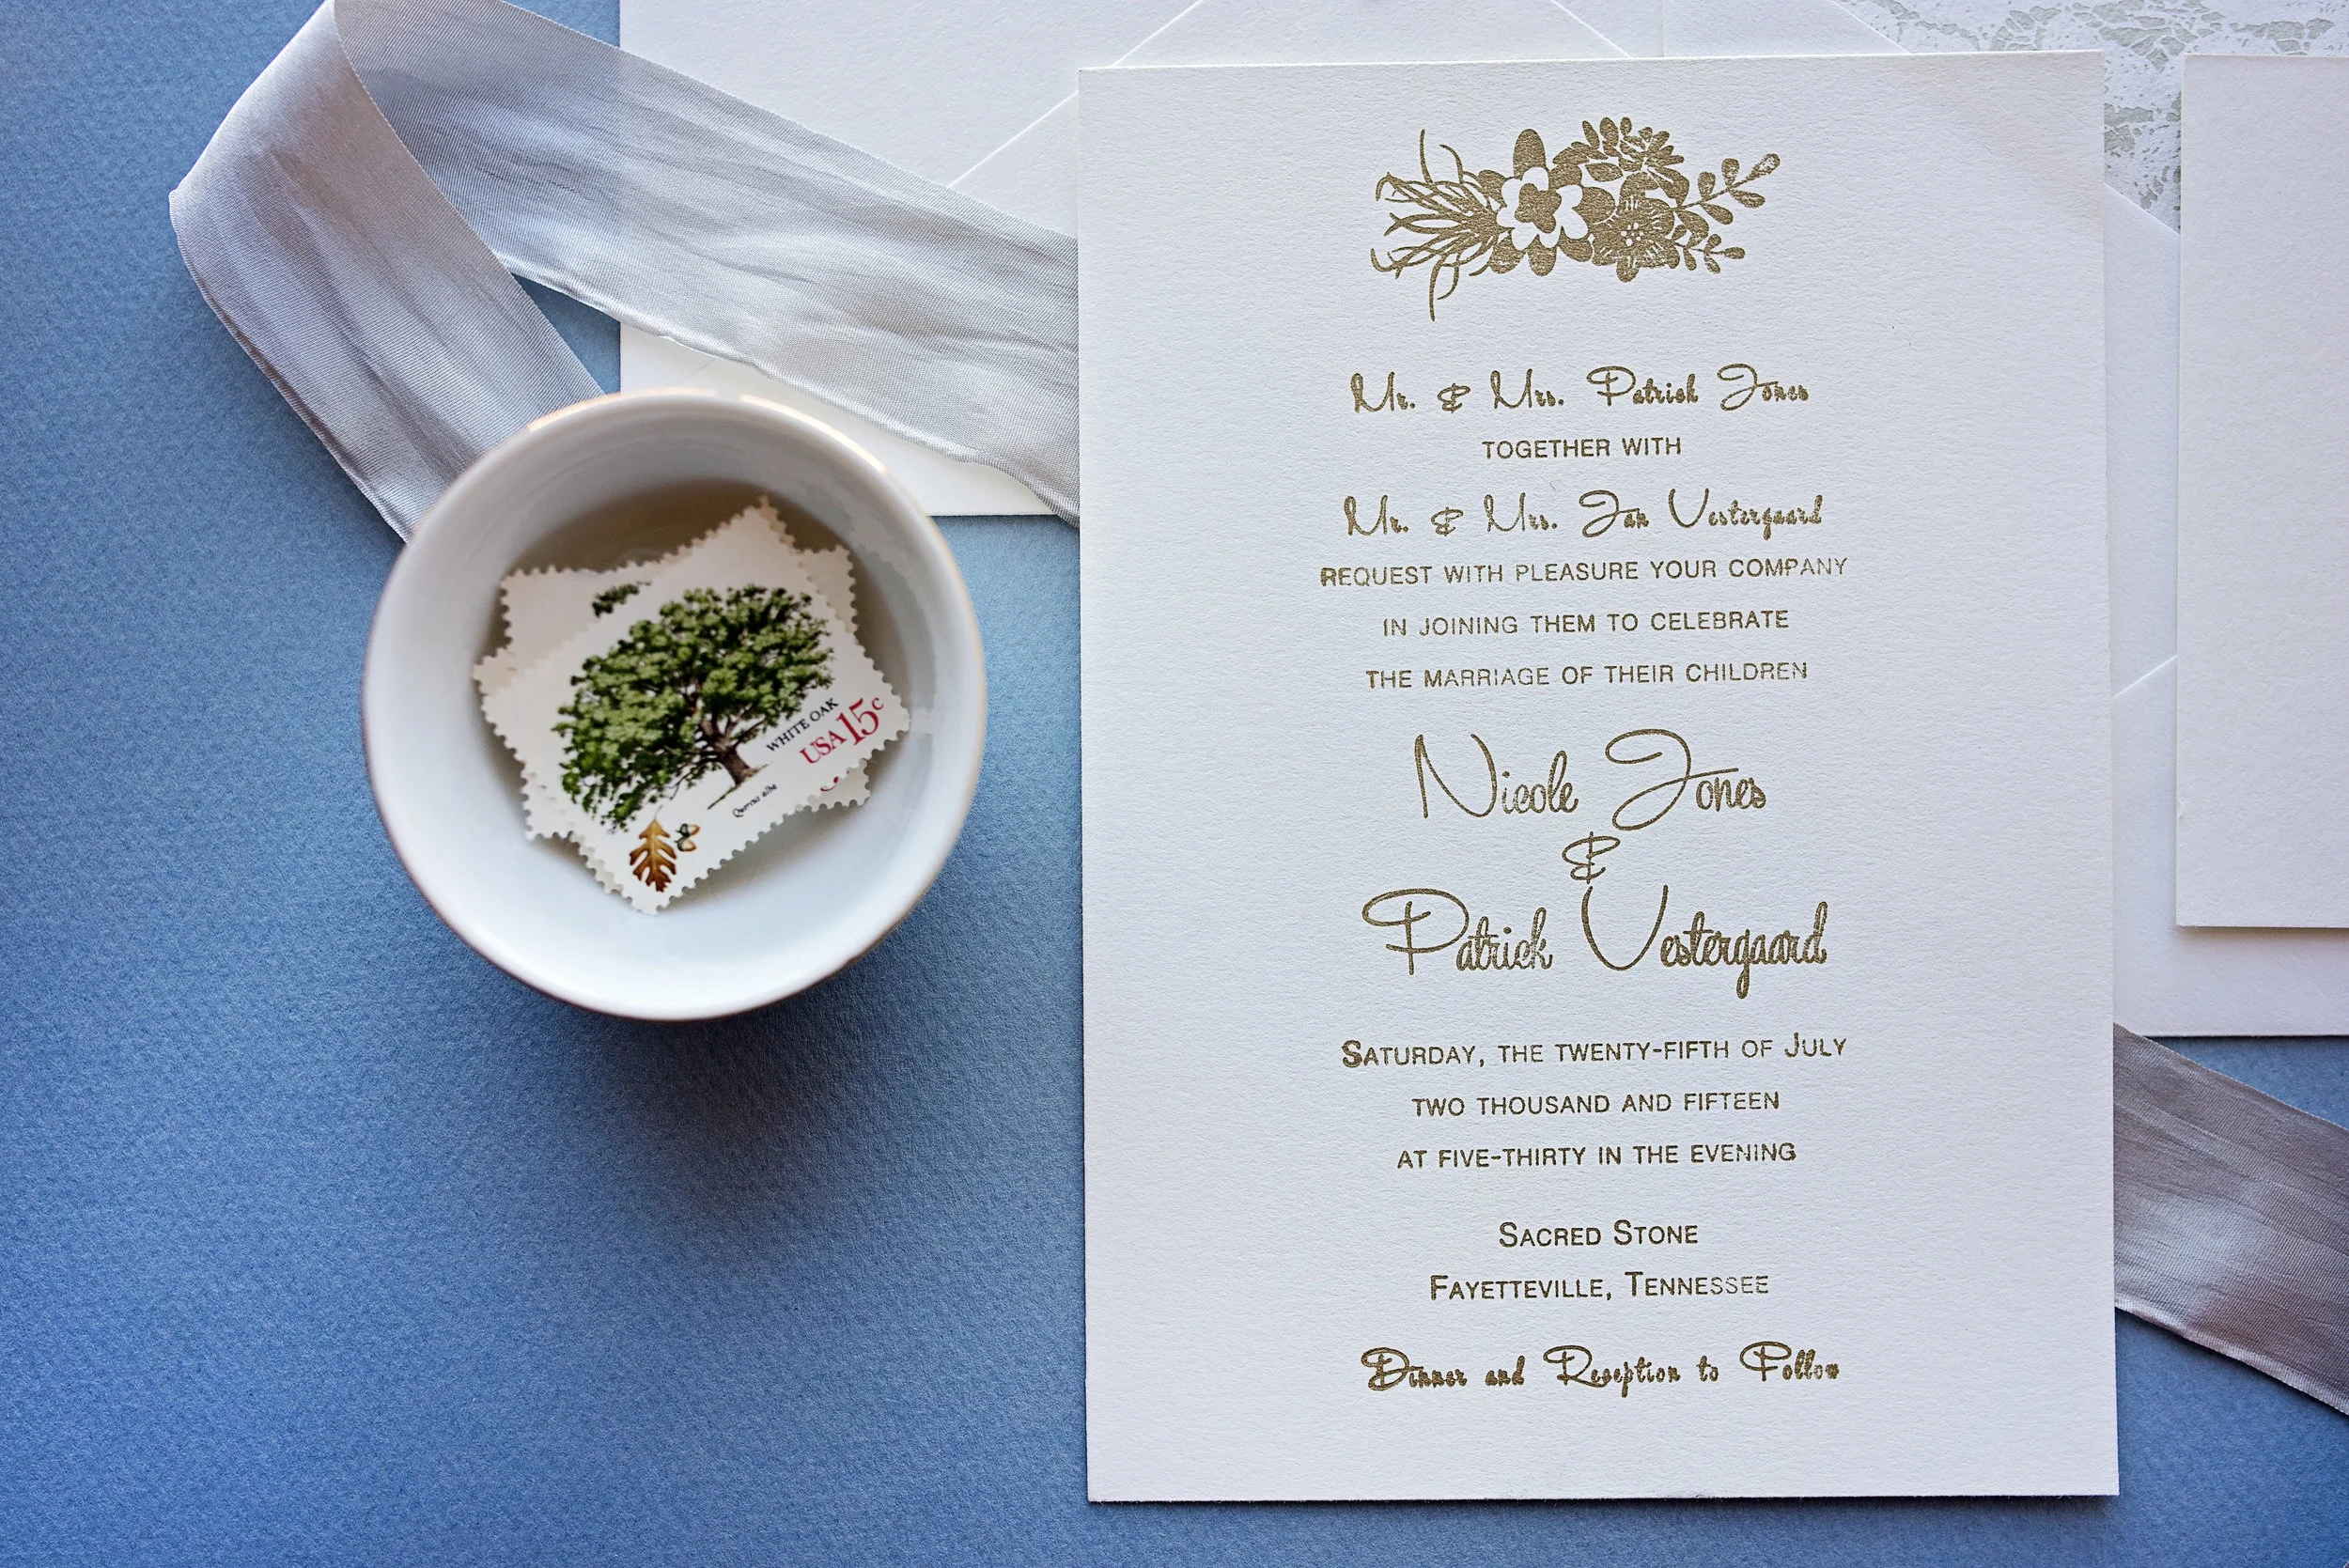 WHITE OAK
USA 15c
Quercus alba
Mr. & Mrs. Patrick Jones
TOGETHER WITH
Mr. & Mrs. Jan Vestergaard
REQUEST WITH PLEASURE YOUR COMPANY
IN JOINING THEM TO CELEBRATE
THE MARRIAGE OF THEIR CHILDREN
Nicole Jones
&
Patrick Vestergaard
SATURDAY, THE TWENTY-FIFTH OF JULY
TWO THOUSAND AND FIFTEEN
AT FIVE-THIRTY IN THE EVENING
SACRED STONE
FAYETTEVILLE, TENNESSEE
Dinner and Reception to Follow